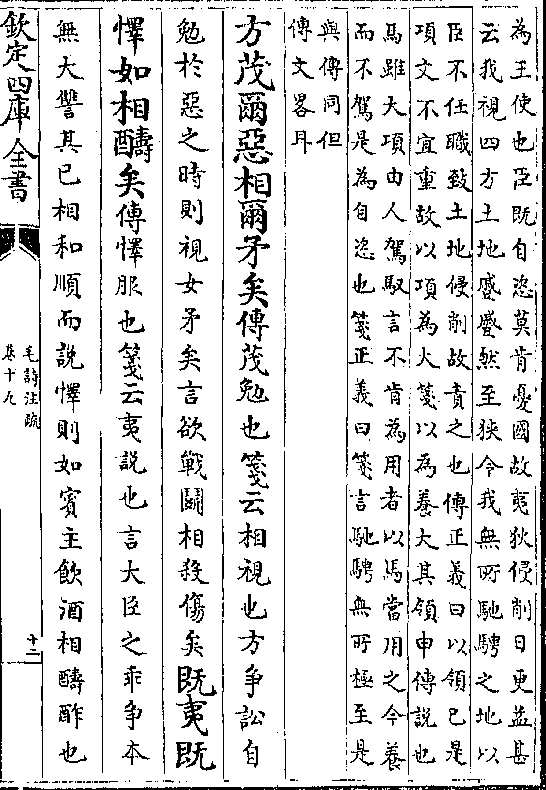 為王使也臣既自恣莫肯憂國故夷狄侵削日更益甚
云我視四方土地蹙蹙然至狹令我無所馳騁之地以
臣不任職致土地侵削故責之也傳正義曰以領已是
項文不宜重故以項為大箋以為養大其領申傳說也
馬雖大項由人駕馭言不肯為用者以馬當用之今養
而不駕是為自恣也箋正義曰箋言馳騁無所極至是
與傳同但
傳文畧耳
方茂爾惡相爾矛矣傳茂勉也箋云相視也方爭訟自
勉於惡之時則視女矛矣言欲戰鬭相殺傷矣既夷既
懌如相醻矣傳懌服也箋云夷說也言大臣之乖爭本
無大讐其已相和順而說懌則如賓主飲酒相醻酢也
欽定四庫全書
毛詩注疏
卷十九
十二